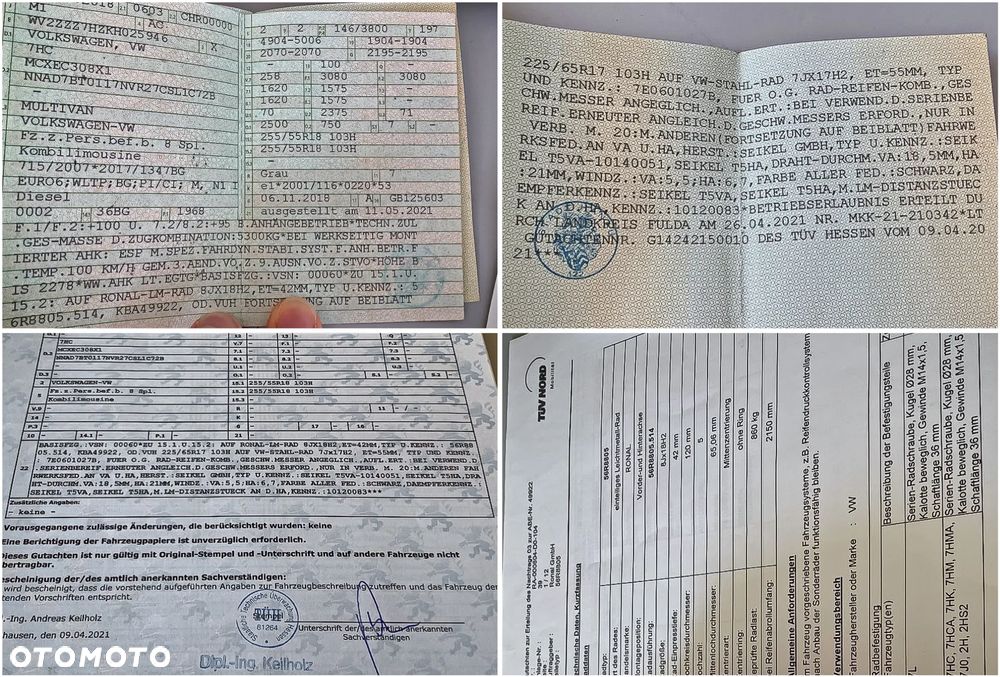 M1
0603
CHR00000
AG
WV2ZZZ7HZKH025946
X
VOLKSWAGEN, VW
7HC
MCXEC308X1
NNAD7BT0117NVR27CSL1C72B
-
MULTIVAN
VOLKSWAGEN-VW
Fz.z.Pers.bef.b. 8 Spl.
Kombilimousine
715/2007*2017/1347BG
EURO6;WLTP;BG;PI/CI; M, N1 I
Diesel
0002
36BG
1968
2
2
146/3800
197
4904-5006
1904-1904
2070-2070
2195-2195
-
100
-
258
3080
3080
1620
1575
-
1620
1575
-
70
2375
71
2500
750
7
-
255/55R18 103H
255/55R18 103H
-
Grau
7
e1*2001/116*0220*53
06.11.2018
GB125603
ausgestellt am 11.05.2021
F.1/F.2:+100 U. 7.2/8.2:+95 B.ANHÄNGEBETRIEB*TECHN.ZUL
.GES-MASSE D.ZUGKOMBINATION:5300KG*BEI WERKSEITIG MONT
IERTER AHK: ESP M.SPEZ.FAHRDYN.STABI.SYST.F.ANH.BETR.F
.TEMP.100 KM/H GEM.3.AEND.VO,Z.9.AUSN.VO.Z.STVO*HÖHE B
IS 2278*WW.AHK LT.EGTG*BASISFZG.:VSN: 00060*ZU 15.1.U.
15.2: AUF RONAL-LM-RAD 8JX18H2,ET=42MM,TYP U.KENNZ.: 5
6R8805.514, KBA49922, OD.VUH FORTSETZUNG AUF BEIBLATT
225/65R17 103H AUF VW-STAHL-RAD 7JX17H2, ET=55MM, TYP
UND KENNZ.: 7E0601027B, FUER O.G. RAD-REIFEN-KOMB.,GES
CHW.MESSER ANGEGLICH.,AUFL.ERT.:BEI VERWEND.D.SERIENBE
REIF.ERNEUTER ANGLEICH.D.GESCHW.MESSERS ERFORD.,NUR IN
VERB. M. 20:M.ANDEREN(FORTSETZUNG AUF BEIBLATT)FAHRWE
RKSFED.AN VA U.HA,HERST.:SEIKEL GMBH,TYP U.KENNZ.:SEIK
EL T5VA-10140051,SEIKEL T5HA,DRAHT-DURCHM.VA:18,5MM,HA
:21MM,WINDZ.:VA:5,5;HA:6,7,FARBE ALLER FED.:SCHWARZ,DA
EMPFERKENNZ.:SEIKEL T5VA,SEIKEL T5HA,M.LM-DISTANZSTUEC
K AN.D.HA, KENNZ.:10120083*BETRIEBSERLAUBNIS ERTEILT DU
RCH LANDKREIS FULDA AM 26.04.2021 NR. MKK-21-210342*LT
GUTACHTENNR. G14242150010 DES TÜV HESSEN VOM 09.04.20
21***
7HC
MCXEC308X1
NNAD7BT0117NVR27CSL1C72B
2 VOLKSWAGEN-VW
15.1 255/55R18 103H
5 Fz.z.Pers.bef.b. 8 Spl.
15.2 255/55R18 103H
Kombilimousine
15.3 -
V.9 -
R -
11 - / -
14 -
K -
P.3 -
6 -
17 -
16 -
10 -
14.1 -
P.1 -
21 -
22
BASISFZG.:VSN: 00060*ZU 15.1.U.15.2: AUF RONAL-LM-RAD 8JX18H2,ET=42MM,TYP U.KENNZ.: 56R88
05.514, KBA49922, OD.VUH 225/65R17 103H AUF VW-STAHL-RAD 7Jx17H2, ET=55MM, TYP UND KENNZ
.: 7E0601027B, FUER O.G. RAD-REIFEN-KOMB.,GESCHW.MESSER ANGEGLICH.,AUFL.ERT.:BEI VERWEND.
SERIENBEREIF.ERNEUTER ANGLEICH.D.GESCHW.MESSERS ERFORD.,NUR IN VERB. M. 20:M.ANDEREN
FAHRWERKSFED.AN VA U.HA,HERST.:SEIKEL GMBH,TYP U.KENNZ.:SEIKEL T5VA-10140051,SEIKEL T5HA,DRA
HT-DURCHM.VA:18,5MM,HA:21MM,WINDZ.:VA:5,5;HA:6,7,FARBE ALLER FED.:SCHWARZ,DAEMPFERKENNZ.:
SEIKEL T5VA,SEIKEL T5HA,M.LM-DISTANZSTUECK AN D.HA,KENNZ.:10120083***
Zusätzliche Angaben:
- keine -
Vorausgegangene zulässige Änderungen, die berücksichtigt wurden: keine
Eine Berichtigung der Fahrzeugpapiere ist unverzüglich erforderlich.
Dieses Gutachten ist nur gültig mit Original-Stempel und -Unterschrift und auf andere Fahrzeuge nicht
bertragbar.
escheinigung der/des amtlich anerkannten Sachverständigen:
wird bescheinigt, dass die vorstehend aufgeführten Angaben zur Fahrzeugbeschreibung zutreffen und das Fahrzeug den
tenden Vorschriften entspricht.
l.-Ing. Andreas Keilholz
hausen, den 09.04.2021
TÜH
81264
Unterschrift der/des amtlich anerkannten
Sachverständigen
Dipl.-Ing. Keilholz
OTOMOTO
TÜV NORD
Mobilität
utachten zur Erteilung des Nachtrags 03 zur ABE-Nr. 49922
RA-000804-D0-104
39
1 / 12
Ronal GmbH
56R8805
echnische Daten, Kurzfassung
addaten
adtyp: 56R8805
art des Rades: einteiliges Leichtmetall-Rad
andelsmarke: RONAL
Montageposition: Vorder-und Hinterachse
adausführung: 56R8805.514
adgröße: 8Jx18H2
ad-Einpresstiefe: 42 mm
ochkreisdurchmesser: 120 mm
ochzahl: 5
ittenlochdurchmesser: 65,06 mm
entrierart: Mittenzentrierung
entrierring: ohne Ring
eprüfte Radlast: 860 kg
ei Reifenabrollumfang: 2150 mm
Allgemeine Anforderungen
m Fahrzeug vorgeschriebene Fahrzeugsysteme, z.B. Reifendruckkontrollsysteme
nach Anbau der Sonderräder funktionsfähig bleiben.
Verwendungsbereich
Fahrzeughersteller oder Marke : VW
Radbefestigung
Fahrzeugtyp(en)
Beschreibung der Befestigungsteile
7L
Serien-Radschraube, Kugel Ø28 mm,
Kalotte beweglich, Gewinde M14x1,5,
Schaftlänge 36 mm
7HC, 7HCA, 7HK, 7HM, 7HMA,
7J0, 2H, 2HS2
Serien-Radschraube, Kugel Ø28 mm,
Kalotte beweglich, Gewinde M14x1,5
Schaftlänge 36 mm